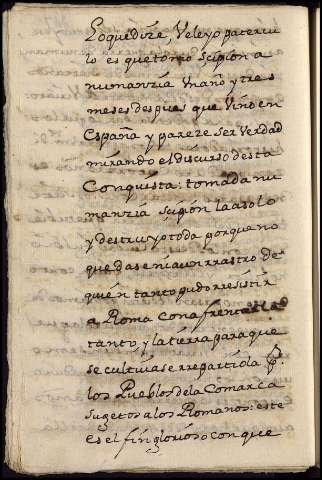 Loquedize, Veleyo patercu
lo es que tomo Scipion a
numanzia Vnaño y tres
meses despues que Vino en
España y pareze ser Verdad
mirando el discurso desta
Conquista: tomada nu
manzia Scipion la asolo
y destruyo toda porque no
quedase ni aun rrastro de
quien tanto pudo rresistir
a Roma con afrenta
tanto, y la tierra para que
se cultivase rrepartio la
los Pueblos de la Comarca
sugetos alos Romanos: este
es el fin glorioso con que